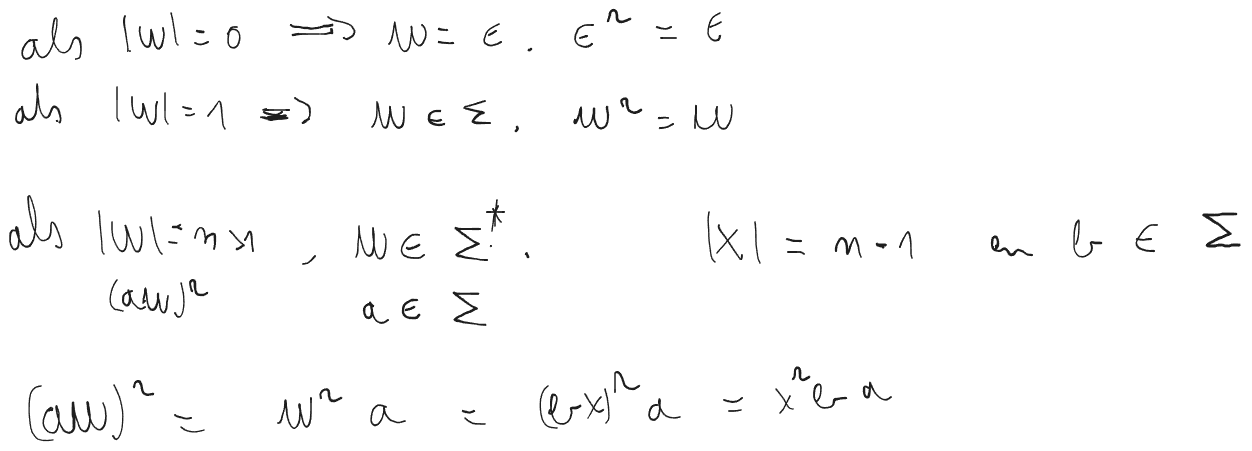 als |w| = 0 ⟹ w = ϵ . ϵ^r = ϵ
als |w| = 1 ⟹ w ∈ Σ . w^r = w
als |w| = n > 1 , w ∈ Σ* . |x| = n - 1 en b ∈ Σ
(aw)^r a ∈ Σ
(aw)^r = w^r a = (bx)^r a = x^r b a